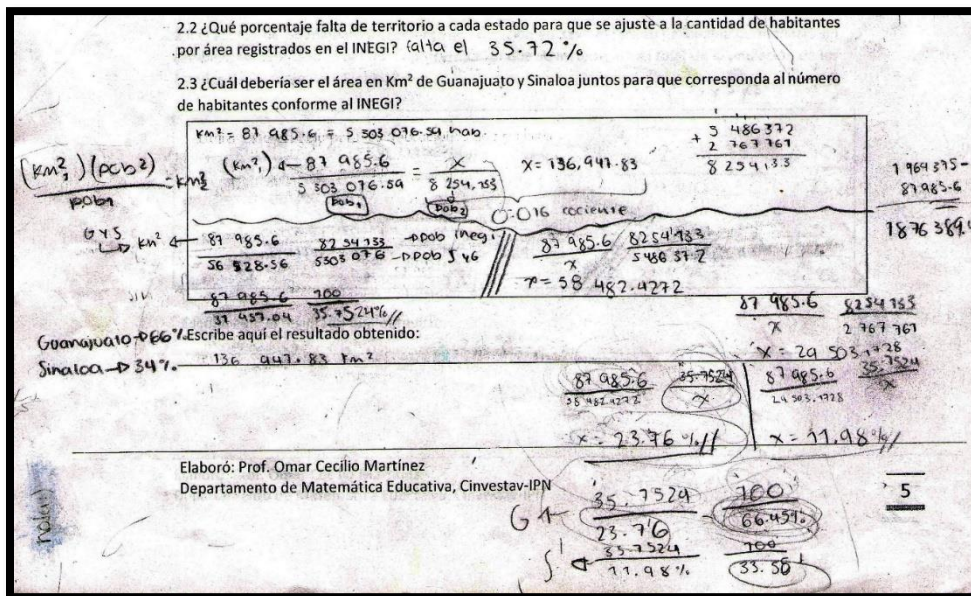 2.2 ¿Qué porcentaje falta de territorio a cada estado para que se ajuste a la cantidad de habitantes
por área registrados en el INEGI? falta el 35.72 %
2.3 ¿Cuál debería ser el área en Km² de Guanajuato y Sinaloa juntos para que corresponda al número
de habitantes conforme al INEGI?
km² = 87 985.6 = 5 503 076.59 hab.
5 486372
+ 2 767 761
8 254,133
(km²₁)(pob2) = km²₂
pob1
(km²₁) ← 87 985.6 = x
5 503 076.59 8 254,133
pob1 pob2
x = 136,947.83
1 964 375 -
87 985.6
1876 389.4
0.016 cociente
G y S
↳ km² ← 87 985.6 8254133 → pob inegi
56 528.56 5503 076 → pob J y G
87 985.6 8254'133
x 5 486 37 2
x = 58 482.4272
87 985.6 100
31 457.04 35.7524%//
87 985.6 8254 133
x 2 767 761
x = 29 503.1728
Guanajuato → 66%
Escribe aquí el resultado obtenido:
Sinaloa → 34%
136 947.83 km²
87 985.6 35.7524
58 482.4272 x
x = 23.76 %//
87 985.6 35.7524
29 503.1728 x
x = 11.98%//
Elaboró: Prof. Omar Cecilio Martínez
Departamento de Matemática Educativa, Cinvestav-IPN
5
G ← 35.7524 100
23.76 66.45%
S ← 35.7524 100
11.98% 33.50